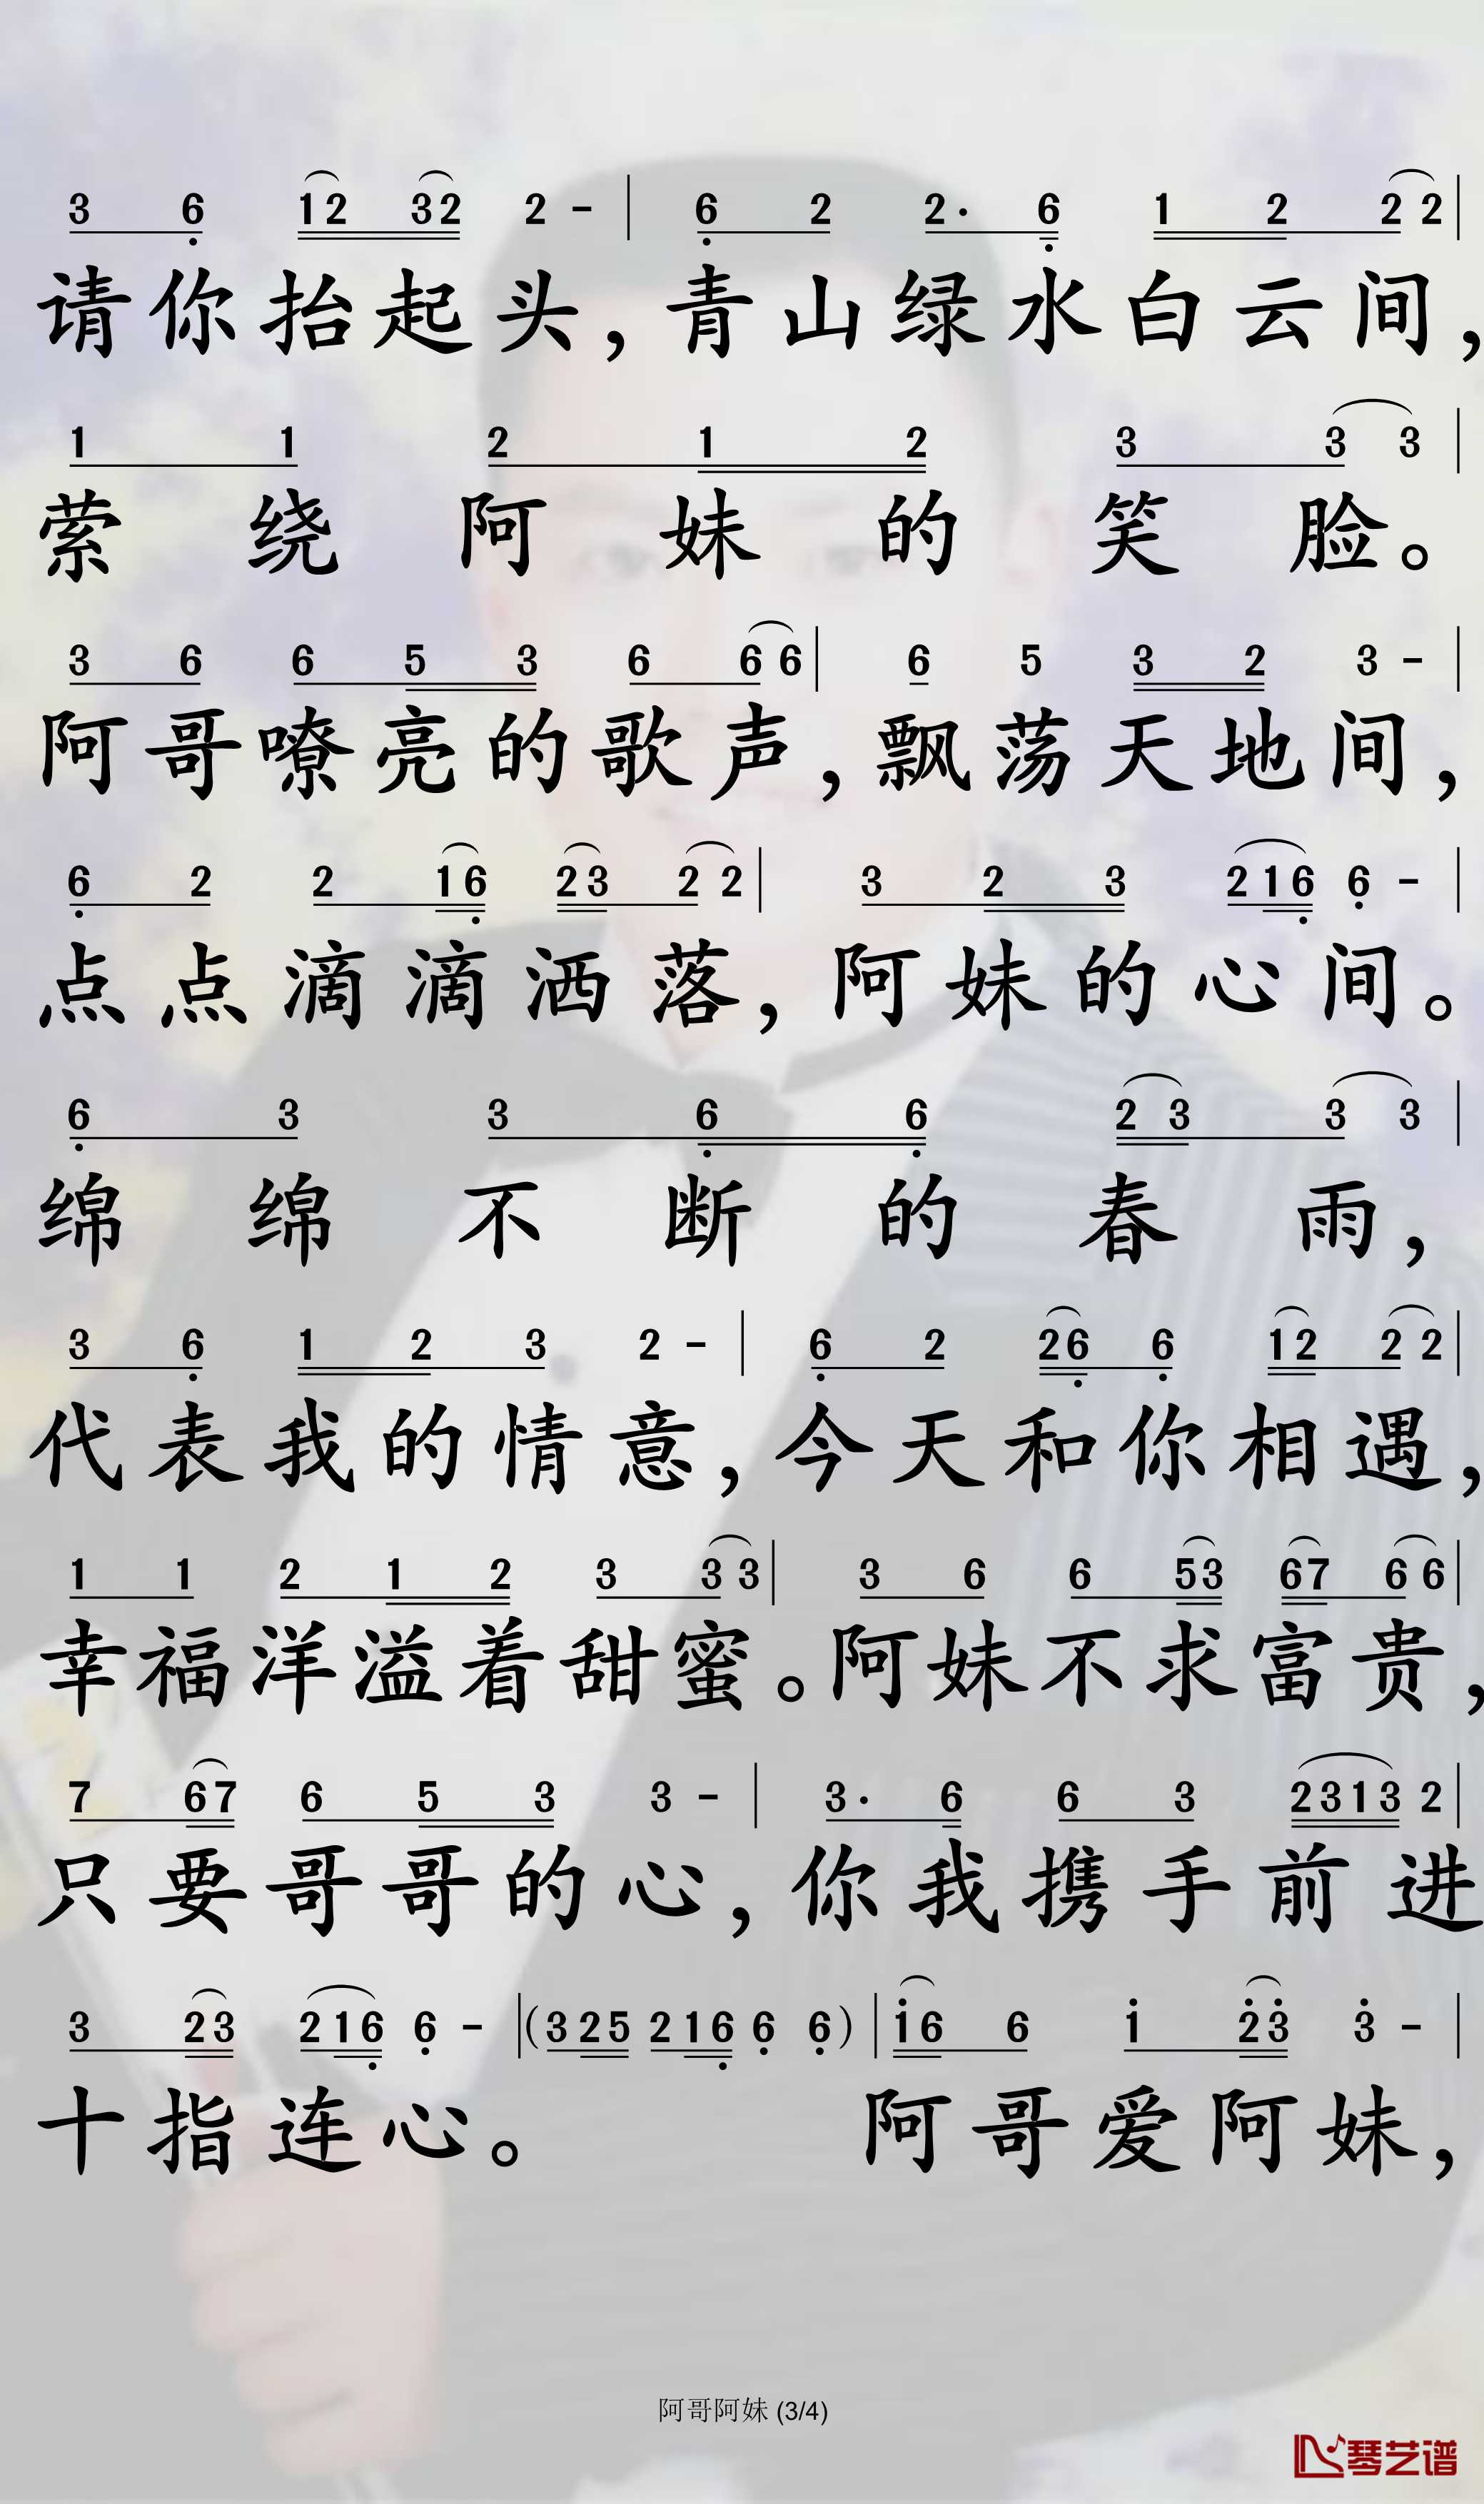 3 6 12 32 2 - | 6 2 2· 6 1 2 2 2 |
请你抬起头，青山绿水白云间，
1 1 2 1 2 3 3 3 |
萦绕阿妹的笑脸。
3 6 6 5 3 6 6 6 | 6 5 3 2 3 - |
阿哥嘹亮的歌声，飘荡天地间，
6 2 2 16 23 2 2 | 3 2 3 216 6 - |
点点滴滴洒落，阿妹的心间。
6 3 3 6 6 2 3 3 3 |
绵绵不断的春雨，
3 6 1 2 3 2 - | 6 2 26 6 12 2 2 |
代表我的情意，今天和你相遇，
1 1 2 1 2 3 3 3 | 3 6 6 53 67 6 6 |
幸福洋溢着甜蜜。阿妹不求富贵，
7 67 6 5 3 3 - | 3· 6 6 3 2313 2 |
只要哥哥的心，你我携手前进
3 23 216 6 - | (325 216 6 6) | 16 6 1 23 3 - |
十指连心。 阿哥爱阿妹，
阿哥阿妹 (3/4)
琴艺谱